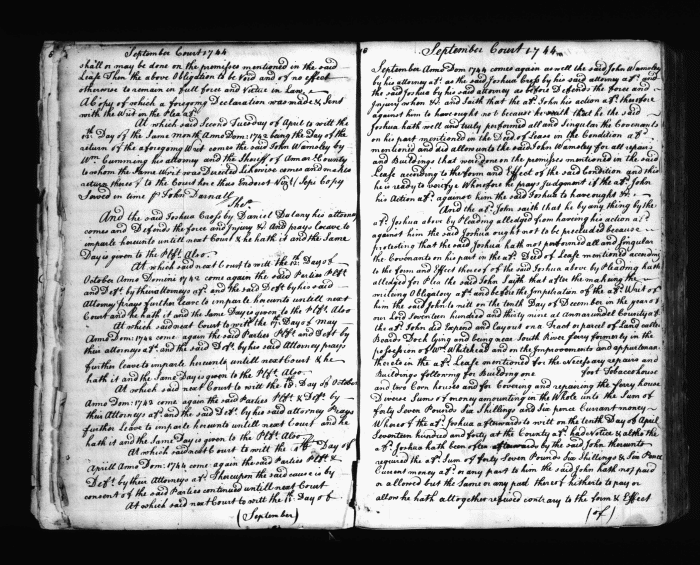 September Court 1744
shall or may be done on the premises mentioned in the said
Lease Then the above Obligation to be Void and of no effect
otherwise to remain in full force and Virtue in Law
A Copy of which a foregoing Declaration was made & Sent
with the Writ in the Plea afd.
At which said Second Tuesday of April to witt the
th Day of the Same month Anno Dom: 1742 being the Day of the
return of the aforegoing Writ comes the said John Wamsley by
Wm Cumming his attorney and the Sheriff of Annar: County
to whom the Same Writ was Directed Likewise comes and makes
return thereof to the Court here thus Endorst Copy
Saved in time pr John Darnall
And the said Joshua Cross by Daniel Dulany his attorney
comes and Defends the force and Injury &c and prays leave to
imparle hereunto untill next Court & he hath it and the Same
Day is given to the Pltf. Also
At which said next Court to witt the th Day of
October Anno Domini 1742 come again the said Parties Pltf.
and Deft by their attorneys afd. and the said Deft by his said
Attorney prays further leave to imparle hereunto untill next
Court and he hath it and the Same Day is given to the Pltf. Also
At which said next Court to witt the th Day of May
Anno Dom: 1743 come again the said Parties Pltf. and Deft by
their attorneys afd. and the said Deft by his said Attorney prays
further leave to imparle hereunto untill next Court & he
hath it and the Same Day is given to the Pltf. Also
At which said next Court to witt the Day of October
Anno Dom: 1743 come again the said Parties Pltf. & Deft. by
their Attorneys afd. and the said Deft by his said attorney Prays
further Leave to imparle hereunto untill next Court and he
hath it and the Same Day is given to the Pltf. Also
At which said next Court to witt the th Day of
Aprill Anno Dom: 1744 come again the said Parties Pltf. &
Deft. by their Attorneys afd. Thereupon the said cause is by
consent of the said Parties continued untill next Court
At which said next Court to witt the th Day of
(September)
September Court 1744
September Anno Dom 1744 comes again as well the said John Wamsley
by his attorney afd. as the said Joshua Cross by his said attorney afd. and
the said Joshua by his said attorney as before Defends the force and
Injury when &c. and Saith that the afd. John his action afd. therefore
against him to have ought not because he saith that he the said
Joshua hath well and truly performed all and Singular the Covenants
on his part mentioned in the Deed of Lease in the Condition afd.
mentioned and did allow unto the said John Wamsley for all repairs
and Buildings that were done on the premises mentioned in the said
Lease according to the form and Effect of the said Condition and this
he is ready to verifye Wherefore he prays Judgment if the afd. John
his Action afd. against him the said Joshua to have ought &c.
And the afd. John saith that he by any thing by the
afd. Joshua above by Pleading alledged from having his action afd.
against him the said Joshua ought not to be precluded because
protesting that the said Joshua hath not performed all and Singular
the Covenants on his part in the afd. Deed of Lease mentioned according
to the form and Effect thereof as the said Joshua above by Pleading hath
alledged for Plea the said John Saith that after the making the
writing Obligatory afd. and before the Impetration of the afd. Writ of
him the said John to witt on the tenth Day of December in the year of
our Lord Seventeen hundred and thirty nine at Annarundel County afd.
the afd. John did Expend and lay out on a Tract or parcel of Land called
Beards Dock lying and being near South River ferry formerly in the
possession of Wm. Whitehead and on the Improvements and appurtenances
thereto in the afd. Lease mentioned for the Necessary repairs and
Buildings following for Building one foot Tobaccohouse
and two Corn houses and for Covering and repairing the ferry house
Diverse Sums of money amounting in the Whole unto the Sum of
forty Seven Pounds Six Shillings and Six pence Current money
Whereof the afd. Joshua afterwards to witt on the tenth Day of April
Seventeen hundred and forty at the County afd. had Notice & altho the
afd. Joshua hath been often afterwards by the said John thereunto
required the afd. Sum of forty Seven Pounds Six Shillings & Six Pence
Current money afd. or any part to him the said John hath not paid
or allowed but the Same or any part thereof hitherto to pay or
allow he hath alltogether refused contrary to the form & Effect
(of)